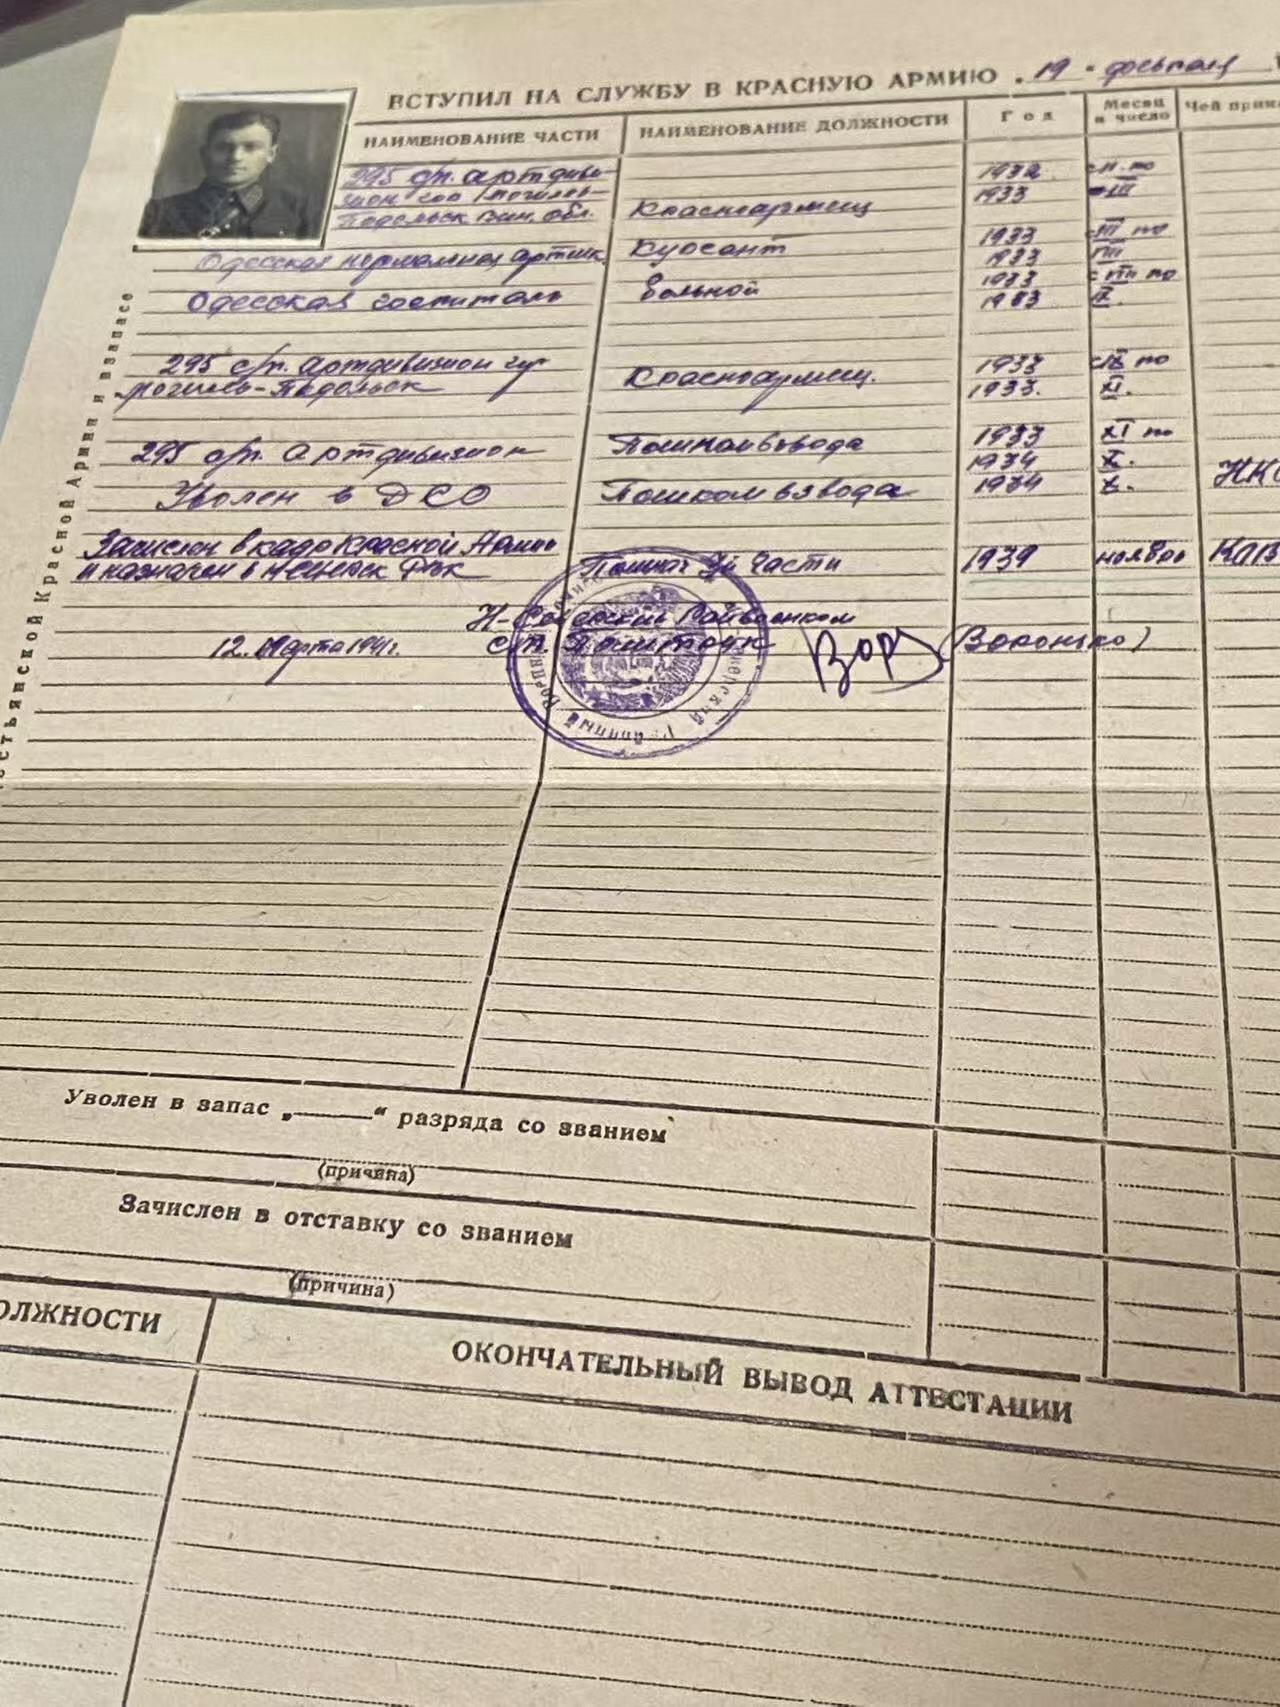 ВСТУПИЛ НА СЛУЖБУ В КРАСНУЮ АРМИЮ „19" февраля
НАИМЕНОВАНИЕ ЧАСТИ НАИМЕНОВАНИЕ ДОЛЖНОСТИ Год Месяц и число Чей прик
295 с/п. артдиви- 1932 с II. по
зион гор Могилев- 1933 III
Подольск Вин. обл. Красноармеец
1933 с III по
Одесская нормальная артшк. Курсант 1933 VIII
1933 с VIII по
Одесская госпиталь больной 1933 IX.
295 с/п. Артдивизион гор 1933 с IX по
Могилев-Подольск Красноармеец. 1933. XI.
1933 XI по
295 с/п. Артдивизион Помкомвзвода 1934 X.
Уволен в ДСО Помкомвзвода 1934 X. НКО
Зачислен в кадр Красной Армии
и назначен в РВК Помнач части 1939 ноябрь
Райвоенком
12. Марта 1941 г. Вор (Воронько)
естьянской Красной Армии и в запасе
Уволен в запас „ “ разряда со званием
(причина)
Зачислен в отставку со званием
(причина)
ОЛЖНОСТИ ОКОНЧАТЕЛЬНЫЙ ВЫВОД АТТЕСТАЦИИ